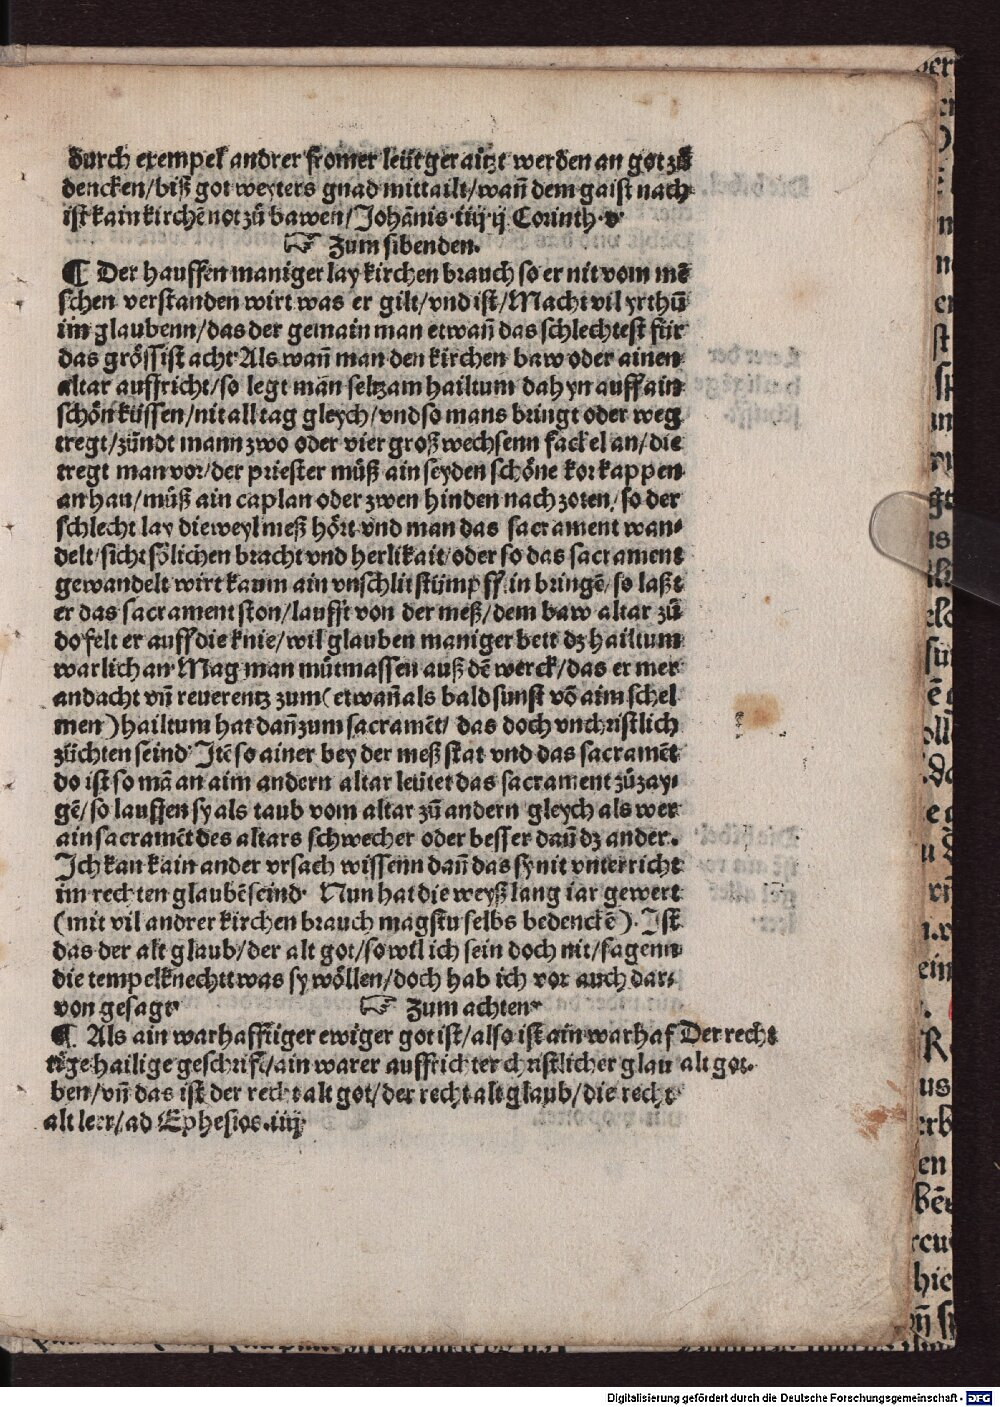 durch exempel andrer fromer leüt geraitzt werden an got zů
dencken/biß got weyters gnad mittailt/wañ dem gaist nach
ist kain kirchē not zů bawen/Johānis ·iiij·ij Corinth·v·
☞ Zum sibenden.
¶ Der hauffen maniger lay kirchen brauch so er nit vom mē
schen verstanden wirt was er gilt/vnd ist/Macht vil yrthū
im glaubenn/das der gemain man etwañ das schlechtest für
das grössist acht·Als wañ man den kirchen baw oder ainen
altar auffricht/so legt man seltzam hailtum dahyn auff ain
schön küssen/nit all tag gleych/vnd so mans bringt oder weg
tregt/zündt mann zwo oder vier groß wechsenn fackel an/die
tregt man vor/der priester můß ain seyden schöne korkappen
an han/můß ain caplan oder zwen hinden nach zoten/so der
schlecht lay die weyl meß hört vnd man das sacrament wan-
delt/sicht sölichen bracht vnd herlikait/oder so das sacrament
gewandelt wirt kaum ain vnschlit stümpff in bringē/so laßt
er das sacrament ston/laufft von der meß/dem baw altar zů
do felt er auff die knie/wil glauben maniger bett dz hailtum
warlich an·Mag man můtmassen auß dē werck/das er mer
andacht vñ reuerentz zum(etwañ als bald sunst vō aim schel
men)hailtum hat dañ zum sacramēt/ das doch vnchristlich
züchten seind·Jtē so ainer bey der meß stat vnd das sacramēt
do ist so mā an aim andern altar leütet das sacrament zů zay-
gē/so lauffen sy als taub vom altar zů andern gleych als wer
ain sacramēt des altars schwecher oder besser dañ dz ander.
Jch kan kain ander vrsach wissenn dañ das sy nit vnterricht
im rechten glaubē seind· Nun hat die weyß lang iar gewert
(mit vil andrer kirchen brauch magstu selbs bedenckē). Jst
das der alt glaub/der alt got/so wil ich sein doch nit/sagenn
die tempelknechtt was sy wöllen/doch hab ich vor auch dar-
von gesagt· ☞ Zum achten·
¶ Als ain warhafftiger ewiger got ist/also ist ain warhaf
tige hailige geschrift/ain warer auffrichter christlicher glau
ben/vñ das ist der recht alt got/der recht alt glaub/die recht
alt leer/ad Ephesios.iiij
Der recht
alt got.
Digitalisierung gefördert durch die Deutsche Forschungsgemeinschaft - DFG